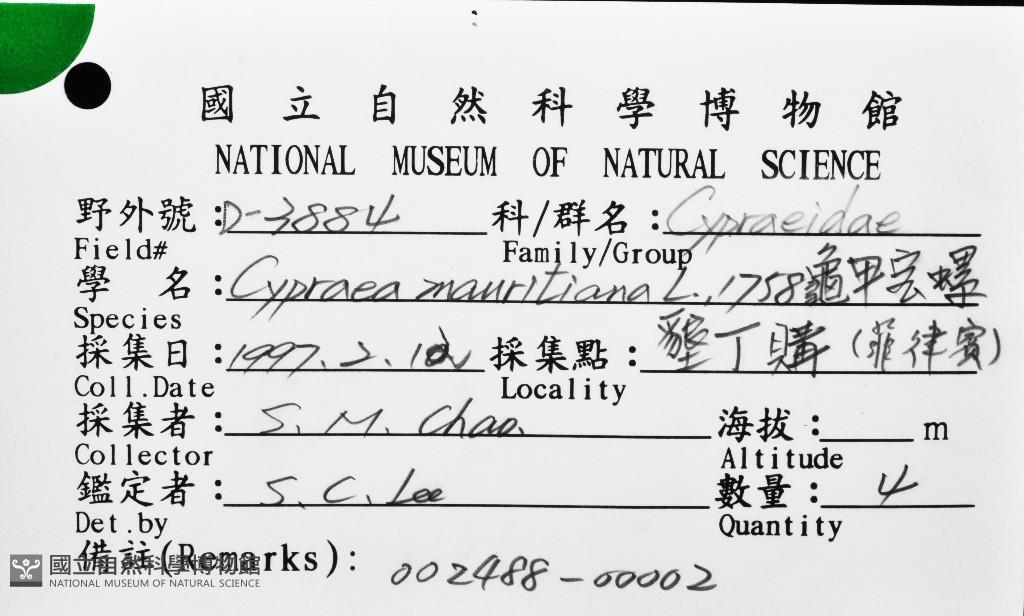 國立自然科學博物館
NATIONAL MUSEUM OF NATURAL SCIENCE
野外號：D-3884 科/群名：Cypraeidae
Field# Family/Group
學 名：Cypraea mauritiana L., 1758 龜甲宝螺
Species
採集日：1997. 2. 採集點：墾丁購（菲律賓）
Coll.Date Locality
採集者：S. M. Chao. 海拔：m
Collector Altitude
鑑定者：S. C. Lee 數量：4
Det.by Quantity
備註(Remarks)：002488-00002
國立自然科學博物館
NATIONAL MUSEUM OF NATURAL SCIENCE